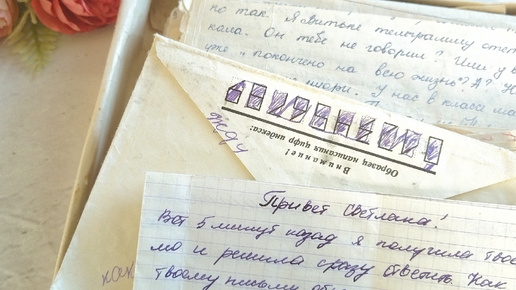 но так. Я Витьке телеграмму
кала. Он тебе не говорил? Или у в
уже „покончено на всю жизнь"? А?
У нас в класса
Внимание!
Образец написания цифр индекса:
жду
Привет Светлана!
Вот 5 минут назад я получила твое
мо и решила сразу ответить. Как
твоему письму
как